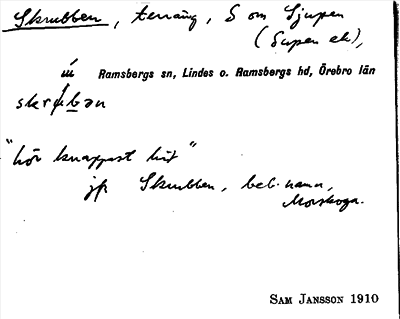 Skrubben, terräng, S om Djupen
(Supen ek),
Ramsbergs sn, Lindes o. Ramsbergs hd, Örebro län
"hör knappast hit"
jfr Skrubben, beb.namn,
Morskoga.
SAM JANSSON 1910